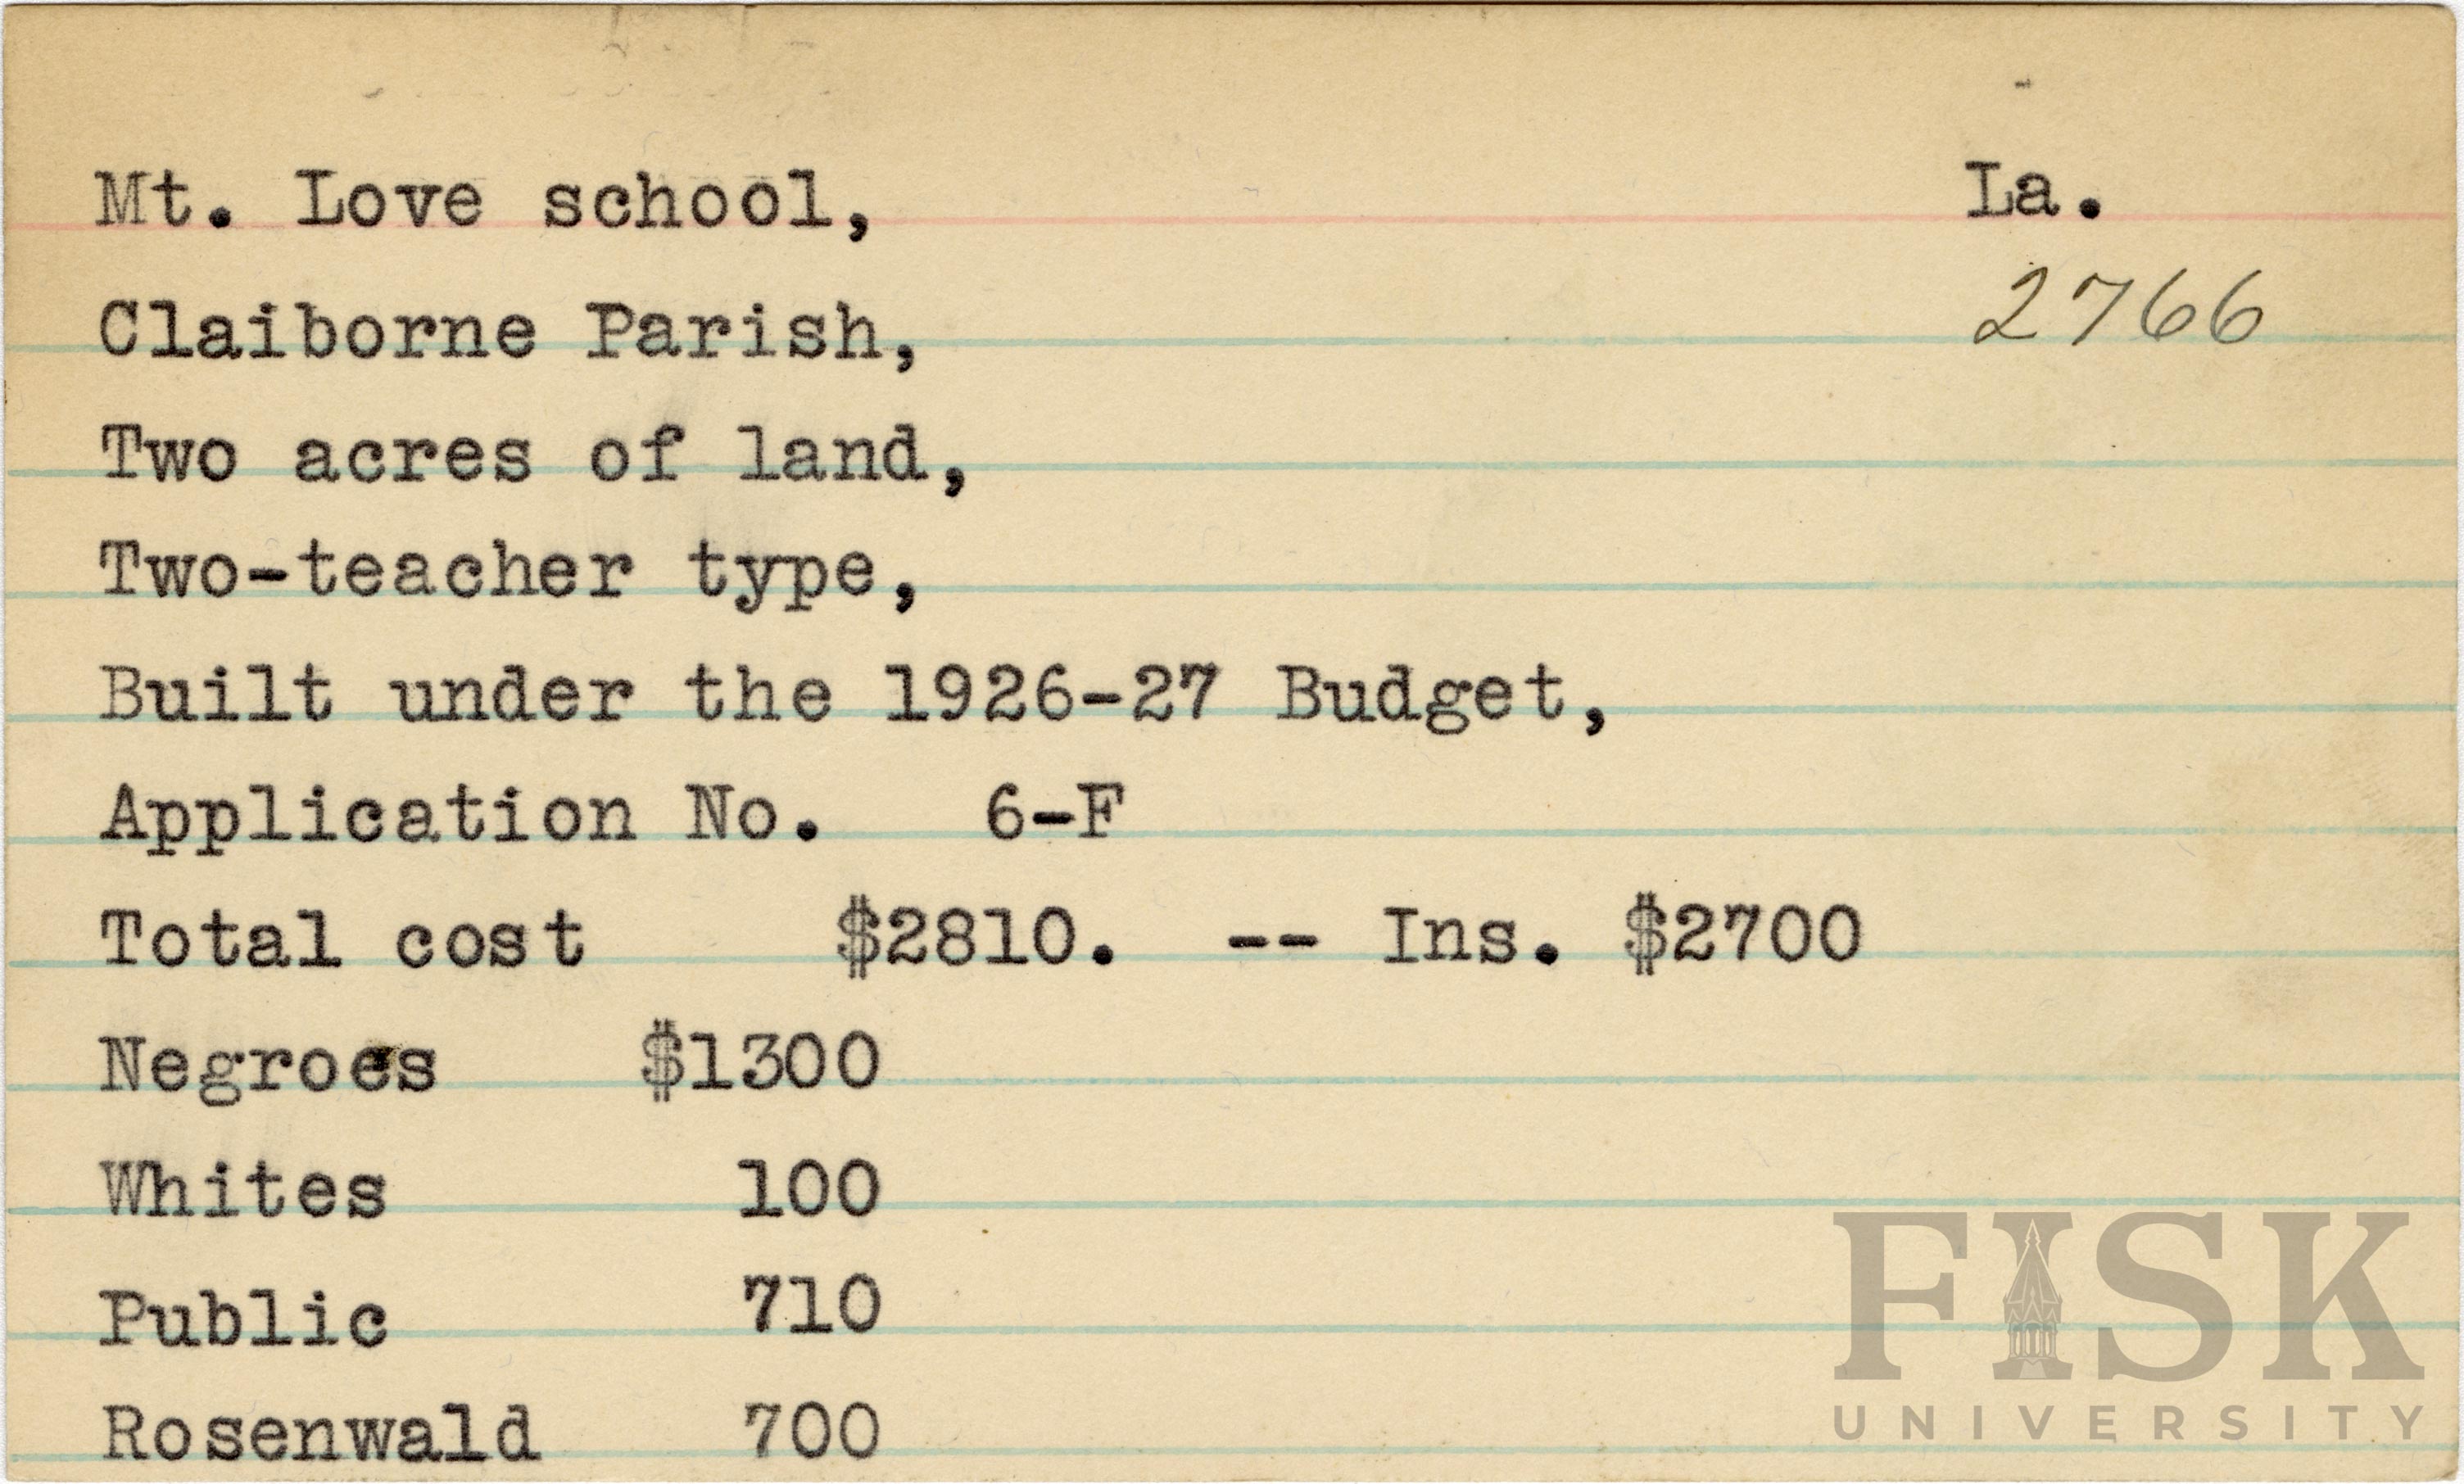 Mt. Love school, La.
2766
Claiborne Parish,
Two acres of land,
Two-teacher type,
Built under the 1926-27 Budget,
Application No. 6-F
Total cost $2810. -- Ins. $2700
Negroes $1300
Whites 100
Public 710
Rosenwald 700
FISK
UNIVERSITY